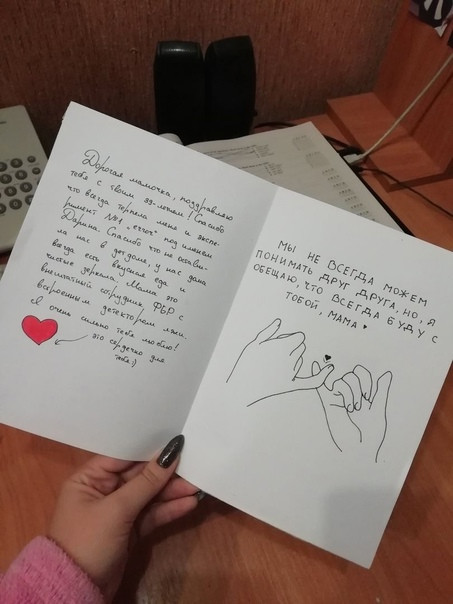 Дорогая мамочка, поздравляю
тебя с твоим 39-летием! Спасибо
что всегда терпела меня и экспе-
римент №1 под именем
Дарина. Спасибо что не остави-
ла нас в детдоме, у нас дома
всегда есть вкусная еда и
чистые зеркала. Мама это
внештатный сотрудник ФБР с
встроенным детектором лжи.
Я очень сильно тебя люблю!
это сердечко для
тебя:)
МЫ НЕ ВСЕГДА МОЖЕМ
ПОНИМАТЬ ДРУГ ДРУГА, НО, Я
ОБЕЩАЮ, ЧТО ВСЕГДА БУДУ С
ТОБОЙ, МАМА